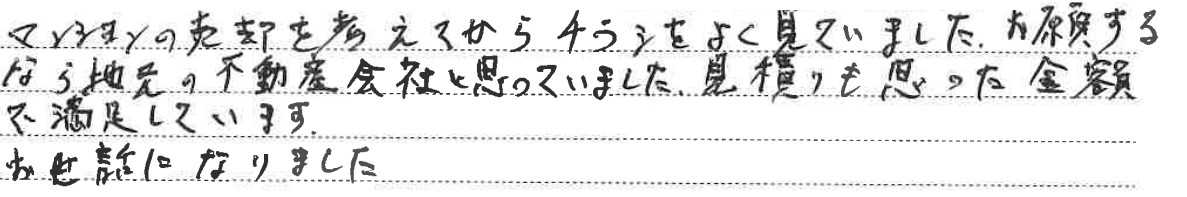 マンションの売却を考えてからチラシをよく見ていました。お願する
なら地元の不動産会社と思っていました。見積りも思った金額
で満足しています。
お世話になりました